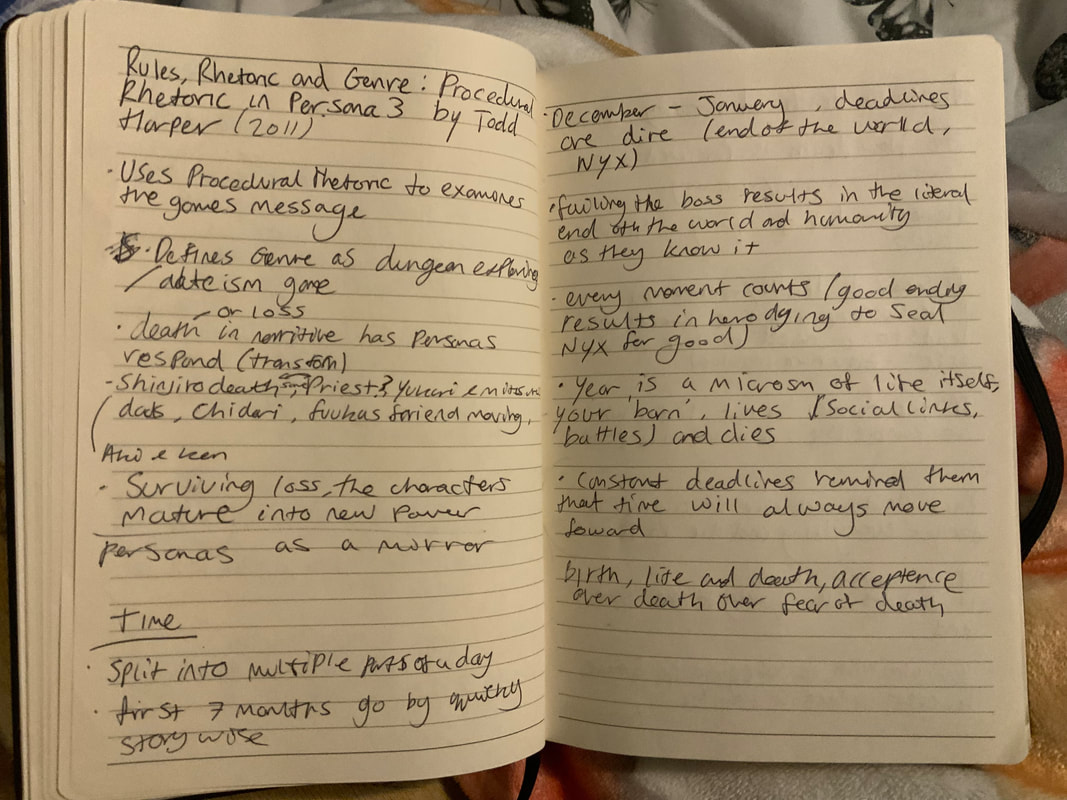 Rules, Rhetoric and Genre: Procedural
Rhetoric in Persona 3 by Todd
Harper (2011)
· Uses Procedural Rhetoric to examones
the games message
· Defines Genre as dungeon exploring
/ dateism game
or loss
· death in narritive has personas
respond (transfom)
- Shinjiro death, Priest? Yukari e mitsuru
dads, Chidori, fuukas friend moving,
· Surviving loss, the characters
mature into new power
personas as a mirror
Time
· Split into multiple parts of a day
· first 7 months go by quickly
story wise
· December - January, deadlines
are dire (end of the world,
Nyx)
· failing the boss results in the literal
end of the world and humanity
as they know it
· every moment counts (good ending
results in hero dying to seal
Nyx for good)
· Year is a microsm of life itself,
your 'born', lives (Social links,
battles) and dies
· Constant deadlines remined them
that time will always move
foward
birth, life and death, acceptence
over death over fear of death